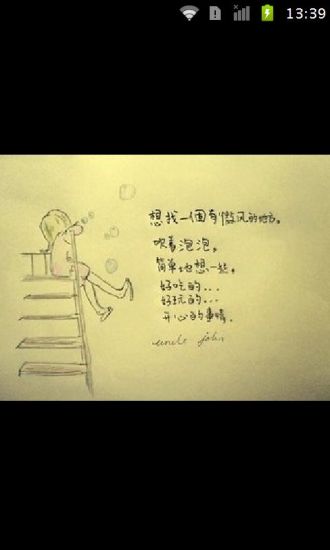 13:39
想找一個有微风的地方。
吹着泡泡,
简单地想一些,
好吃的...
好玩的...
开心的事情.
uncle john